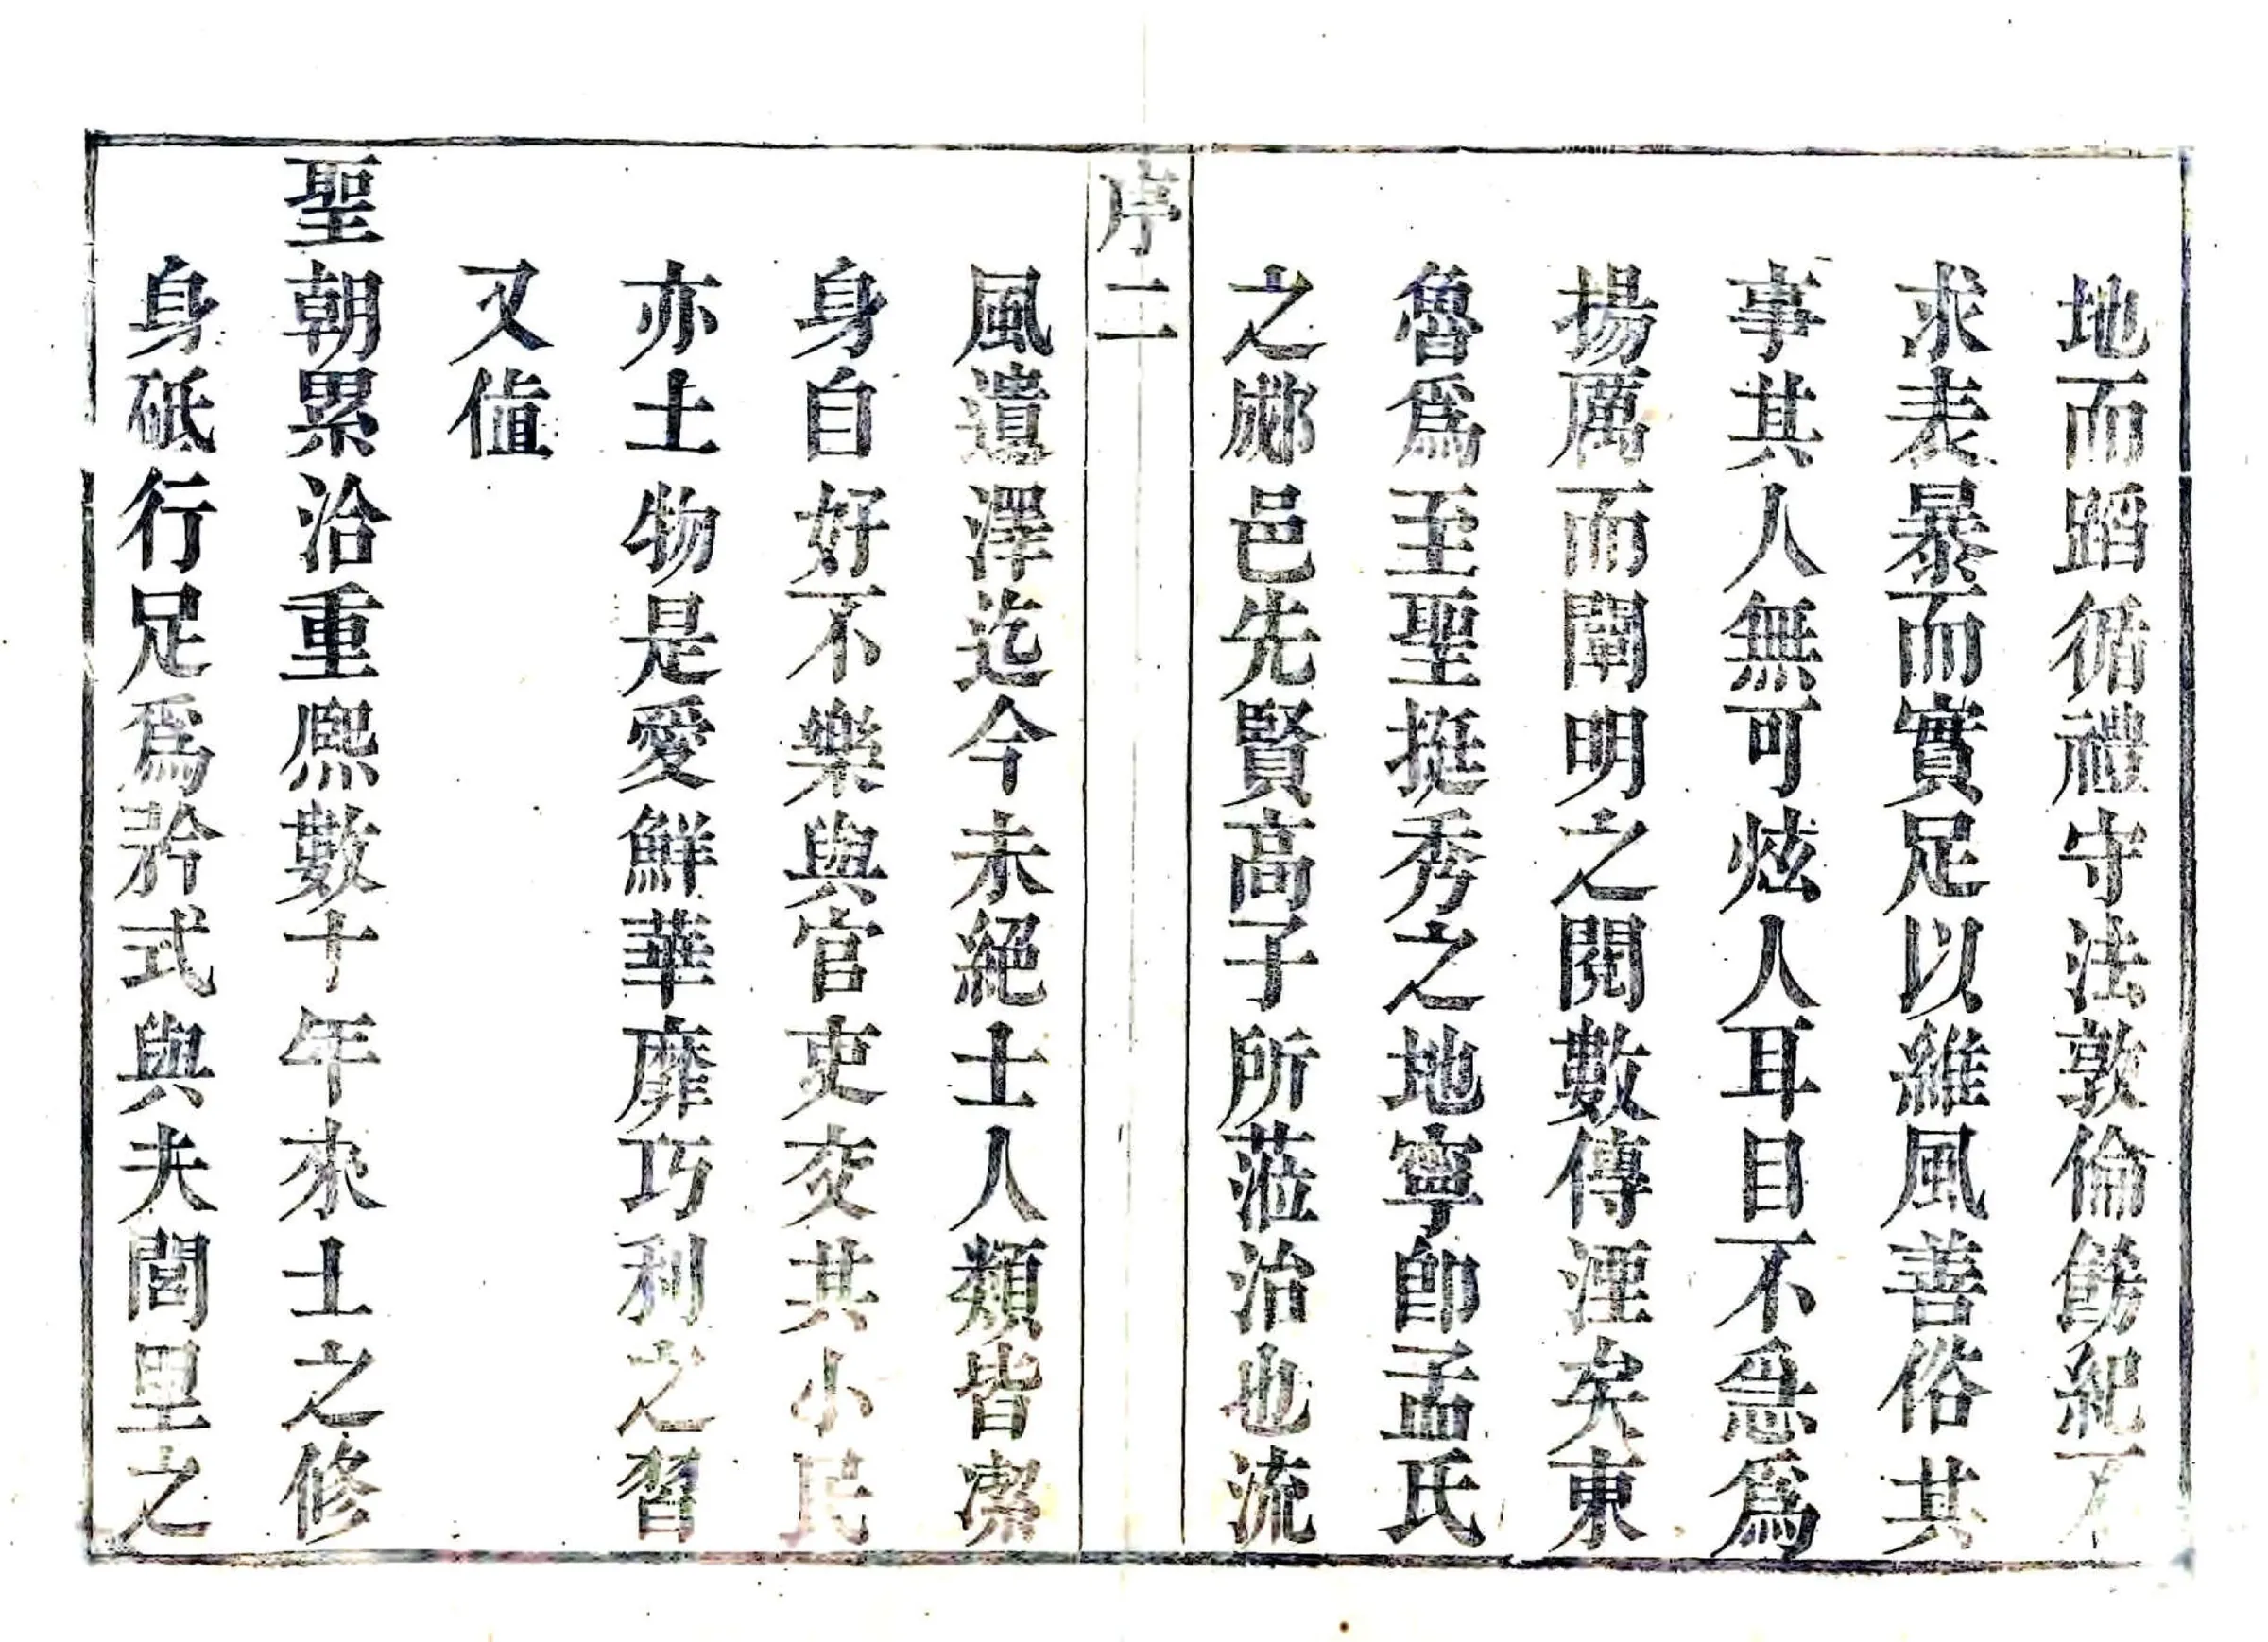 地而蹈循禮守法敦倫飭紀不
求表暴而實足以維風善俗其
事其人無可炫人耳目不急爲
揚厲而闡明之閱數傳湮矣東
魯爲至聖挺秀之地寧卽孟氏
之郕邑先賢高子所蒞治也流
序二
風遺澤迄今未絕士人類皆潔
身自好不樂與官吏交其小民
亦土物是愛鮮華靡巧利之習
又値
聖朝累洽重熙數十年來士之修
身砥行足爲矜式與夫閭里之